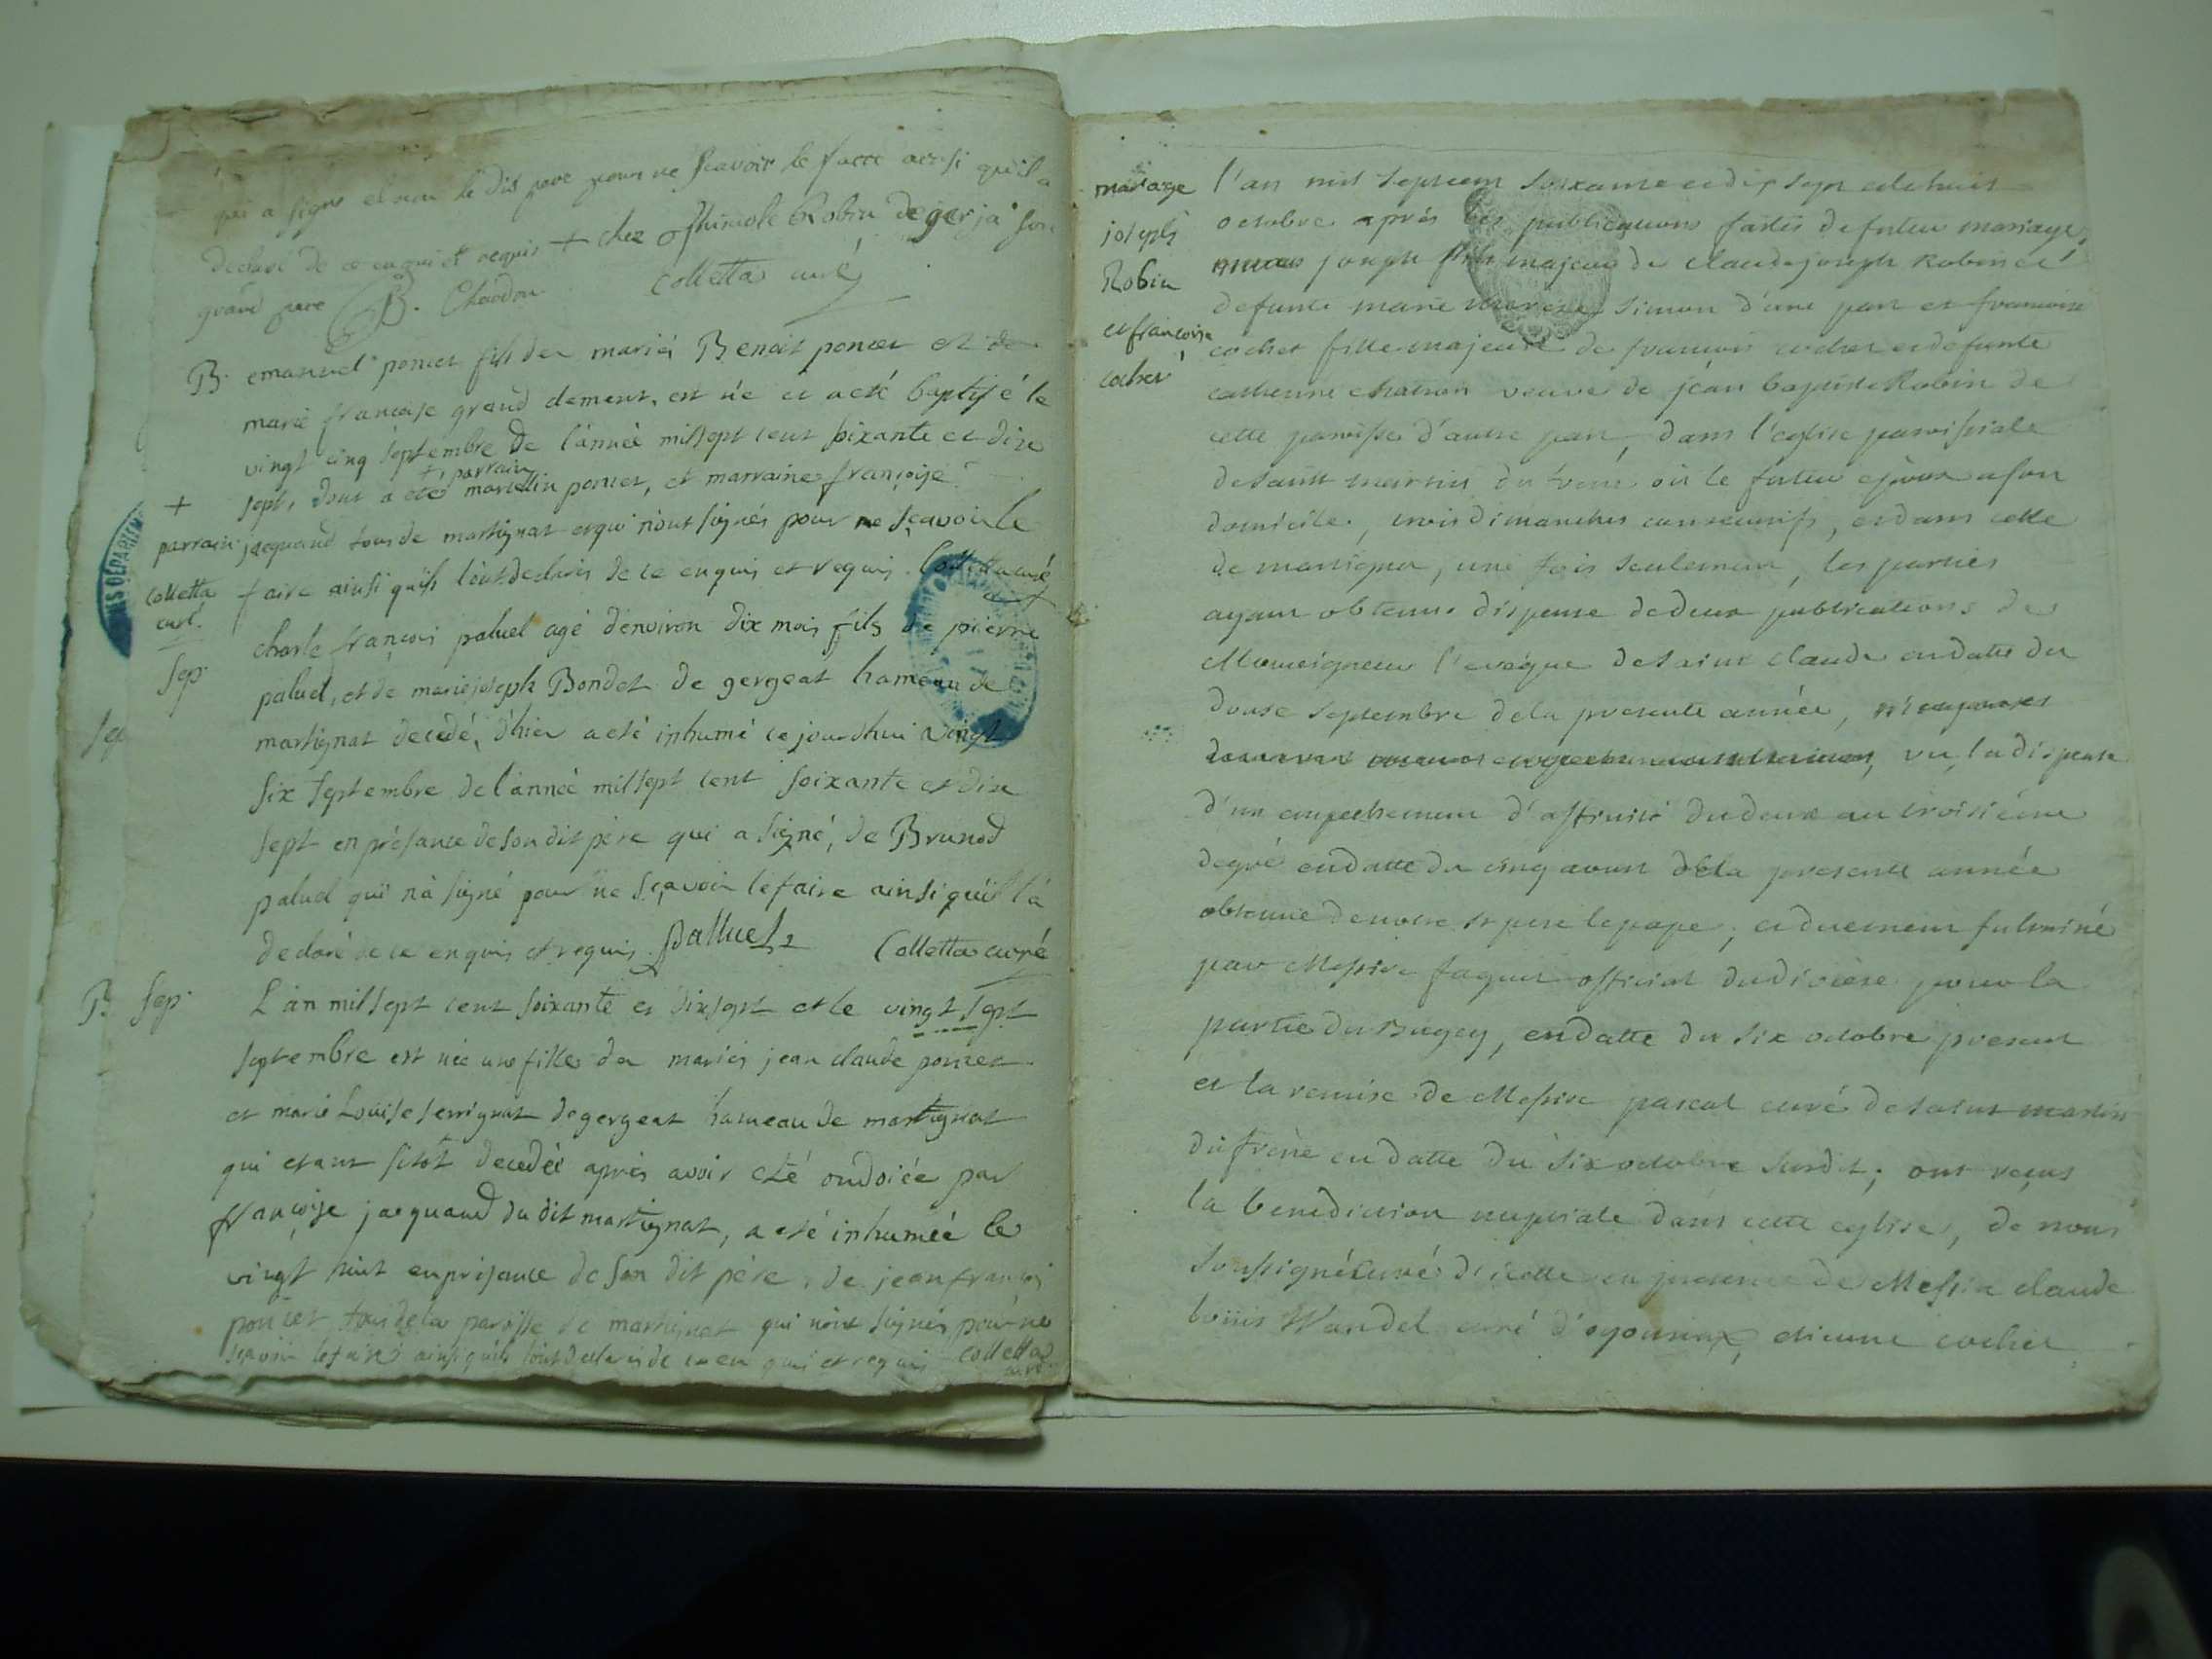 qui a signé et non le dit pere pour ne scavoir le faire ainsi qu'il a
declaré de ce enquis et requis + chez Robin de gerja son
grand pere B. Chardon Colletta curé
B. emanuel poncet fils des mariés Benoit poncet et de
marie francoise grand clement, est né et a eté baptisé le
vingt cinq septembre de l'année mil sept cent soixante et dix
+ parrain
sept, dont a eté martellin poncet, et marraine françoise
parrain jacquand tous de martignat et qui n'ont signés pour ne sçavoir le
Colletta faire ainsi quils l'ont declarés de ce enquis et requis. Colletta curé
curé.
Sep. charle françois paluel agé d'environ dix mois fils de pierre
paluel, et de marie joseph Bondet de gergeat hameau de
Sep martignat decedé, d'hier a eté inhumé ce jourdhui vingt
six septembre de l'année mil sept cent soixante et dix
sept en présance de son dit père qui a signé, de Brunod
paluel qui n'a signé pour ne sçavoir le faire ainsi qu'il l'a
declaré de ce enquis et requis. Palluel Colletta curé
B. Sep. L'an mil sept cent soixante et dix sept et le vingt sept
septembre est née une fille des mariés jean claude poncet
et marie Louise serrignat de gergeat hameau de martignat
qui etant sitôt decedée après avoir eté ondoiée par
françoise jacquand du dit martignat, a eté inhumée le
vingt huit en présance de son dit père, de jean françois
poncet tous de la paroisse de martignat qui n'ont signés pour ne
sçavoir le faire ainsi qu'ils l'ont declarés de ce enquis et requis Colletta
curé
mariage
joseph
Robin
et francoise
cochet
l'an mil sept cent soixante et dix sept et le huit
octobre après les publications faites de futur mariage,
joseph fils majeur de claude joseph Robin et
defunte marie simon d'une part et francoise
cochet fille majeure de francois cochet et defunte
catherine chatron veuve de jean baptiste Robin de
cette paroisse d'autre part, dans l'eglise paroissiale
de saint martin du frene où le futur epoux a son
domicile, trois dimanches consecutifs, et dans celle
de martignat, une fois seulement, les parties
ayant obtenu dispense de deux publications de
Monseigneur l'eveque de saint claude en datte du
douse septembre de la presente année,
vu la dispense
d'un empechement d'affinité du deux au troisième
degré en datte du cinq aoust de la presente année
obtenue de notre st pere le pape, et duement fulminé
par Messire faquet official du diocèse pour la
partie du Bugey, en datte du six octobre present
et la remise de Messire pascal curé de saint martin
du frène en datte du six octobre susdit; ont reçus
la benediction nuptiale dans cette eglise, de nous
soussigné curé d'icelle en presence de Messire claude
louis Wandel curé d'oyonnax, etienne cochet